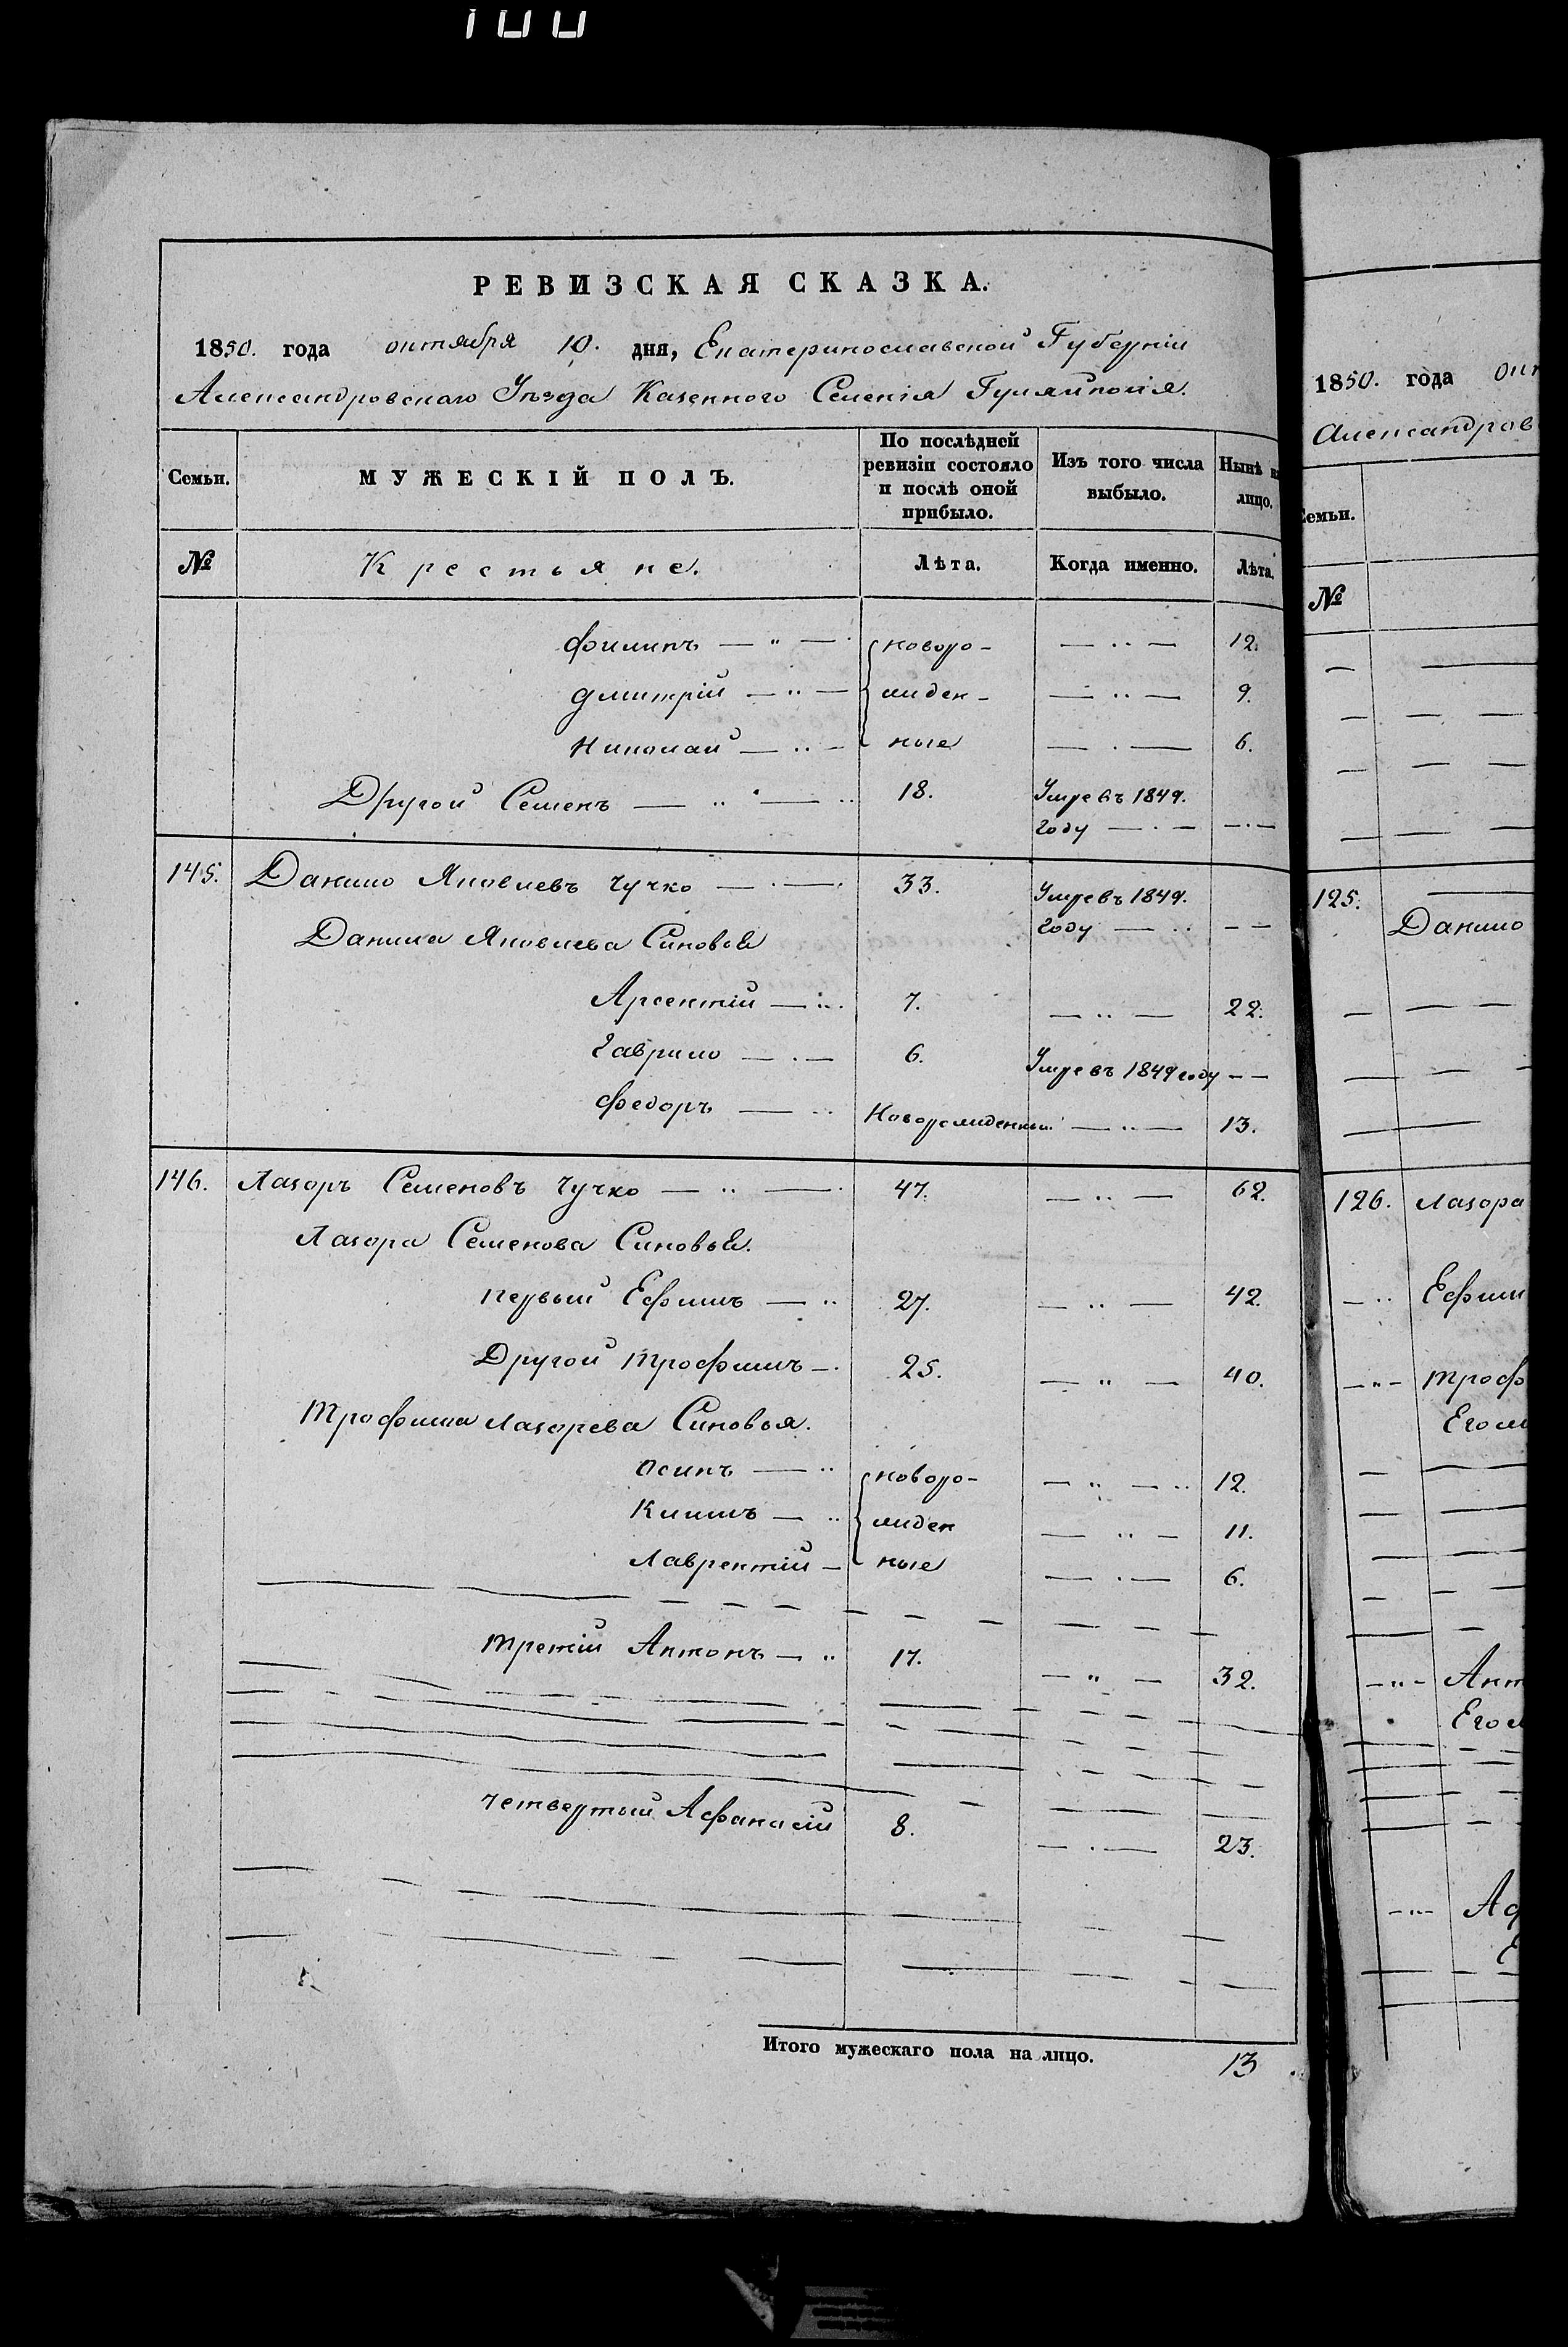 100
РЕВИЗСКАЯ СКАЗКА.
1850. года октября 10. дня, Екатеринославской Губерніи
Александровскаго Уѣзда Казенного Селенія Гуляйполя.
Семьи. МУЖЕСКІЙ ПОЛЪ. По послѣдней ревизіи состояло и послѣ оной прибыло. Изъ того числа выбыло. Нынѣ на лицо.
№ Крестьяне. Лѣта. Когда именно. Лѣта.
Филипъ — „ — новоро- — .. — 12.
Дмитрій — .. — жден- — .. — 9.
Николай — .. — ные — . — 6.
Другой Семенъ — .. — .. 18. Умре въ 1849.
году — . — — . —
145. Данило Яковлевъ Чучко — . — 33. Умре въ 1849.
Данила Яковлева Синовья году — .. — —
Арсентій — .. 7. — .. — 22.
Гаврило — . — 6. Умре въ 1849 году — —
Федоръ — .. Новорожденный — .. — 13.
146. Лазоръ Семеновъ Чучко — .. — 47. — .. — 62.
Лазора Семенова Синовья.
первый Ефимъ — .. 27. — .. — 42.
Другой Трофимъ — . 25. — „ — 40.
Трофима Лазорева Синовья.
Осипъ — .. новоро- — „ — .. 12.
Климъ — .. жден — .. — 11.
Лаврентій — ные — . — 6.
третій Антонъ — .. 17. — „ — 32.
четвертый Афанасій 8. — . — 23.
Итого мужескаго пола на лицо. 13
1850. года окт
Александров
Семьи.
№
125.
Данило
126. Лазора
— .. Ефим
— „ — Троф
Его
— „ — Ант
Его
— ... — Аф
Е